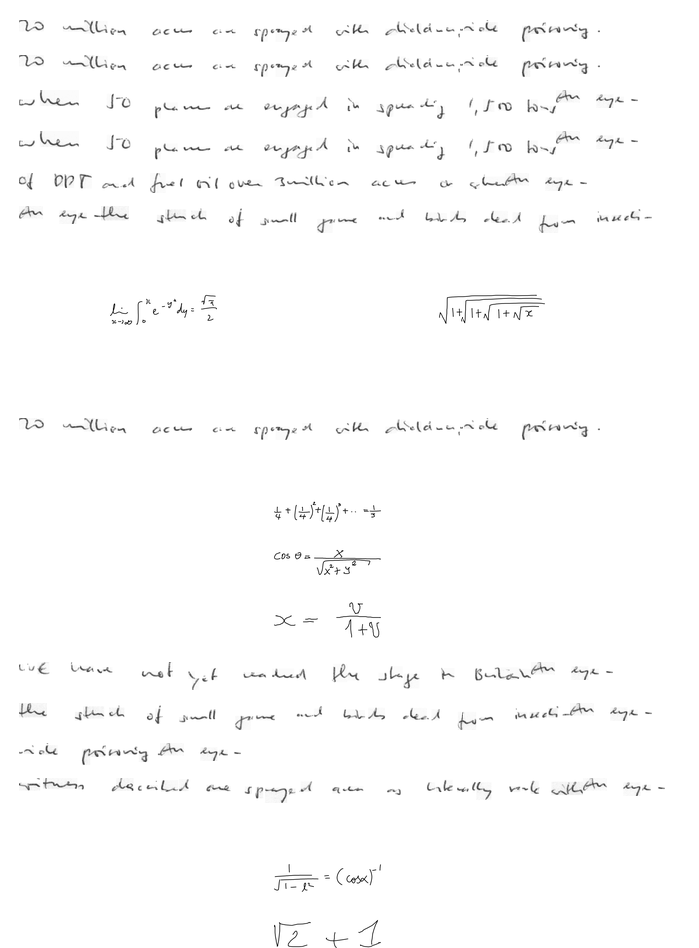 20 million acres are sprayed with dieldrin, -ide poisoning.
20 million acres are sprayed with -ide poisoning.
when 50 planes are engaged in spreading 1,500 tons An eye-
when 50 planes are engaged in spreading 1,500 tons An eye-
of DDT and fuel oil over 3 million acres a when An eye-
An eye- the stench of small game and birds dead from insecti-
\lim_{x \to \infty} \int_0^x e^{-y^2} dy = \frac{\sqrt{\pi}}{2} \sqrt{1+\sqrt{1+\sqrt{1+\sqrt{x}}}}
20 million acres are sprayed with -ide poisoning.
\frac{1}{4} + (\frac{1}{4})^2 + (\frac{1}{4})^3 + \cdots = \frac{1}{3}
\cos \theta = \frac{x}{\sqrt{x^2+y^2}}
x = \frac{v}{1+v}
We have not yet reached the stage in Britain An eye-
the stench of small game and birds dead from insecti- An eye-
-ide poisoning An eye-
witness described one sprayed area as literally rank with An eye-
\frac{1}{\sqrt{1-l^2}} = (\cos \alpha)^{-1}
\sqrt{2} + 1